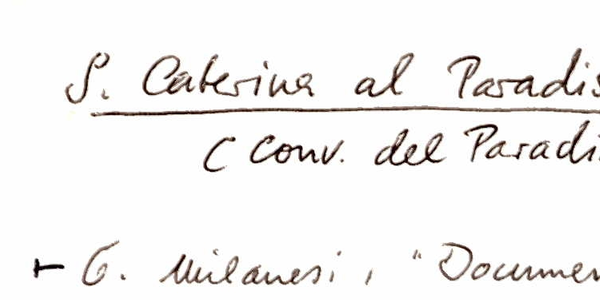 S. Caterina al Paradis
( Conv. del Paradi
G. Milanesi, "Documen